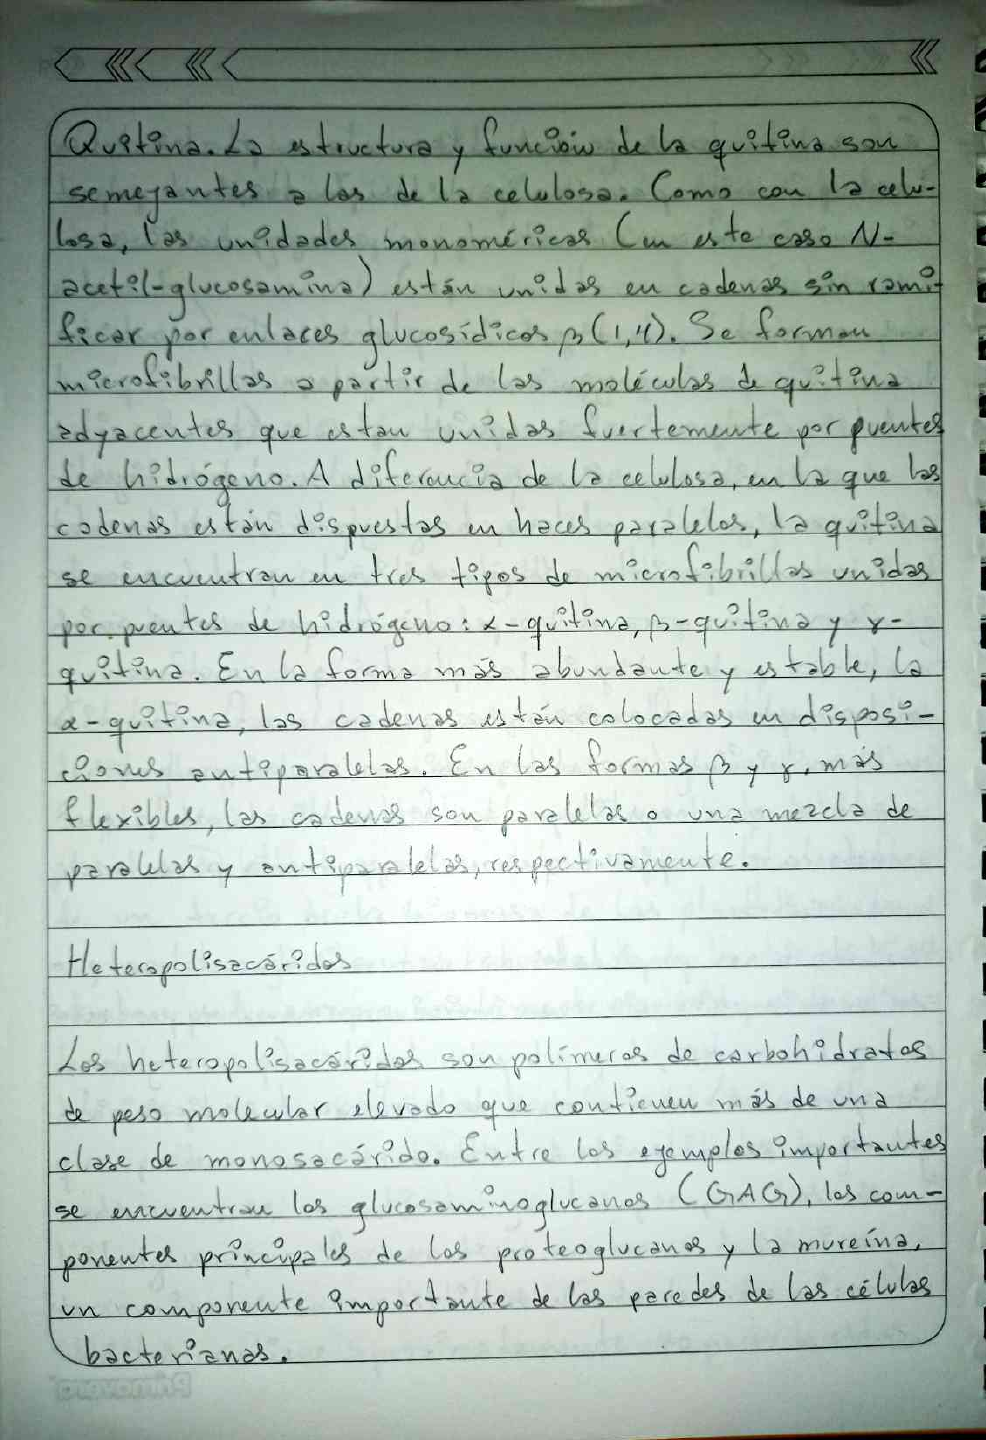 Quitina. La estructura y función de la quitina son
semejantes a las de la celulosa. Como con la celu-
losa, las unidades monoméricas (en este caso N-
acetil-glucosamina) están unidas en cadenas sin rami-
ficar por enlaces glucosídicos β(1,4). Se forman
microfibrillas a partir de las moléculas de quitina
adyacentes que estan unidas fuertemente por puentes
de hidrógeno. A diferencia de la celulosa, en la que las
cadenas están dispuestas en haces paralelos, la quitina
se encuentran en tres tipos de microfibrillas unidas
por puentes de hidrógeno: α-quitina, β-quitina y γ-
quitina. En la forma más abundante y estable, la
α-quitina, las cadenas están colocadas en disposi-
ciones antiparalelas. En las formas β y γ, más
flexibles, las cadenas son paralelas o una mezcla de
paralelas y antiparalelas, respectivamente.
Heteropolisacáridos
Los heteropolisacáridos son polímeros de carbohidratos
de peso molecular elevado que contienen más de una
clase de monosacárido. Entre los ejemplos importantes
se encuentran los glucosaminoglucanos (GAG), los com-
ponentes principales de los proteoglucanos y la mureína,
un componente importante de las paredes de las células
bacterianas.